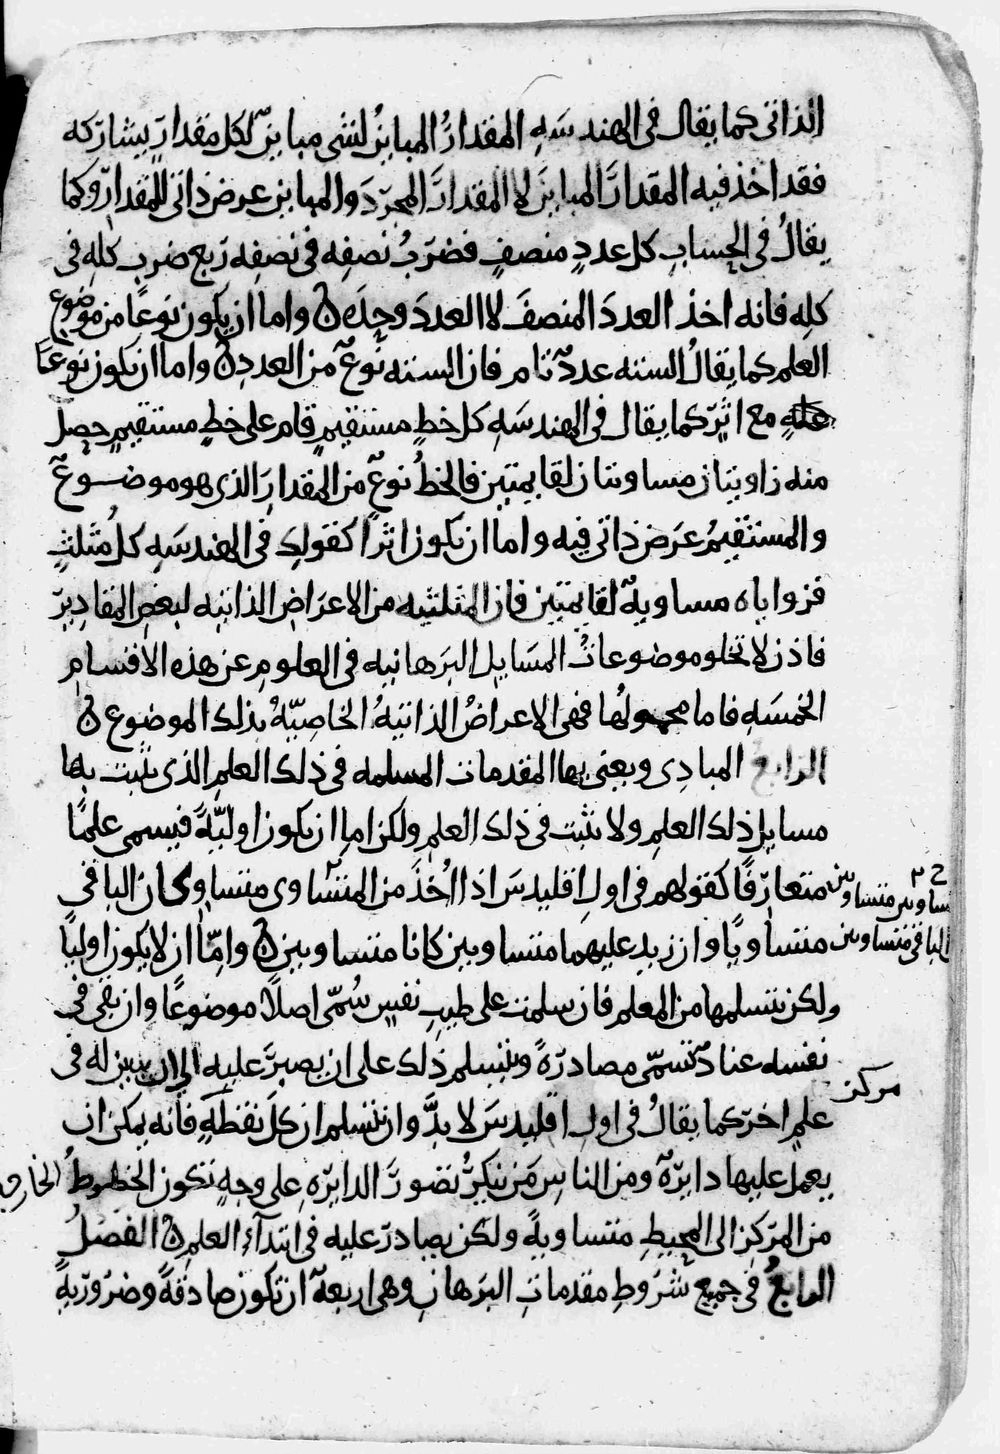 الذاتى كما يقال فى الهندسه المقدار المباين لشى مباين لكل مقدار يشاركه
فقد اخذ فيه المقدار المباين لا المقدار المجرد والمباين عرض ذاتى للمقدار وكما
يقال فى الحساب كل عدد منصف فضرب نصفه فى نصفه ربع ضرب كله فى
كله فانه اخذ العدد المنصف لا العدد وحده ن واما ان يكون نوعا من موضوع
العلم كما يقال السته عدد تام فان السته نوع من العدد ن واما ان يكون نوعا
مع اثر كما يقال فى الهندسه كل خط مستقيم قام على خط مستقيم حصل
منه زاويتان مساويتان لقايمتين فالخط نوع من المقدار الذى هو موضوع
والمستقيم عرض ذاتى فيه واما ان يكون اثرا كقولك فى الهندسه كل مثلث
فزواياه مساوية لقايمتين فان المثلثيه من الاعراض الذاتيه لبعض المقادير
فاذن لا تخلو موضوعات المسايل البرهانيه فى العلوم عن هذه الاقسام
الخمسه فاما محمولها فهى الاعراض الذاتية الخاصية بذلك الموضوع ن
الرابع المبادى ويعنى بها المقدمات المسلمه فى ذلك العلم الذى تثبت بها
مسايل ذلك العلم ولا تثبت فى ذلك العلم ولكن اما ان يكون اولية فيسمى علما
متعارفا كقولهم فى اول اقليدس اذا اخذ من المتساوى متساوى كان الباقى
متساويا وان زيد عليهما متساويين كانا متساويين ن واما ان لا يكون اوليا
ولكن يتسلمها من المعلم فان سلمت على طيب نفس سمى اصلا موضوعا وان بقى فى
نفسه عناد تسمى مصادرة ويتسلم ذلك على ان يصبر عليه الى ان يبين له فى
علم اخر كما يقال فى اول اقليدس لا بد وان نتسلم ان كل نقطة فانه يمكن ان
يعمل عليها دايرة ومن الناس من ينكر تصور الدايره على وجه تكون الخطوط
من المركز الى المحيط متساوية ولكن يصادر عليه فى ابتداء العلم ن الفصل
الرابع فى جميع شروط مقدمات البرهان وهى اربعة ان تكون صادقة وضرورية
متساويين متساويين
الباقى متساويين
مركز
الخارجة